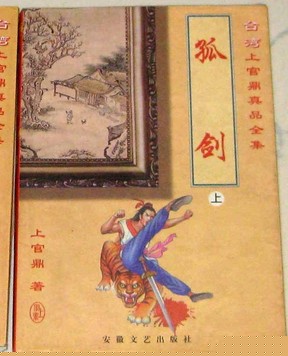 台湾上官鼎真品全集
孤剑
上
上官鼎 著
安徽文艺出版社